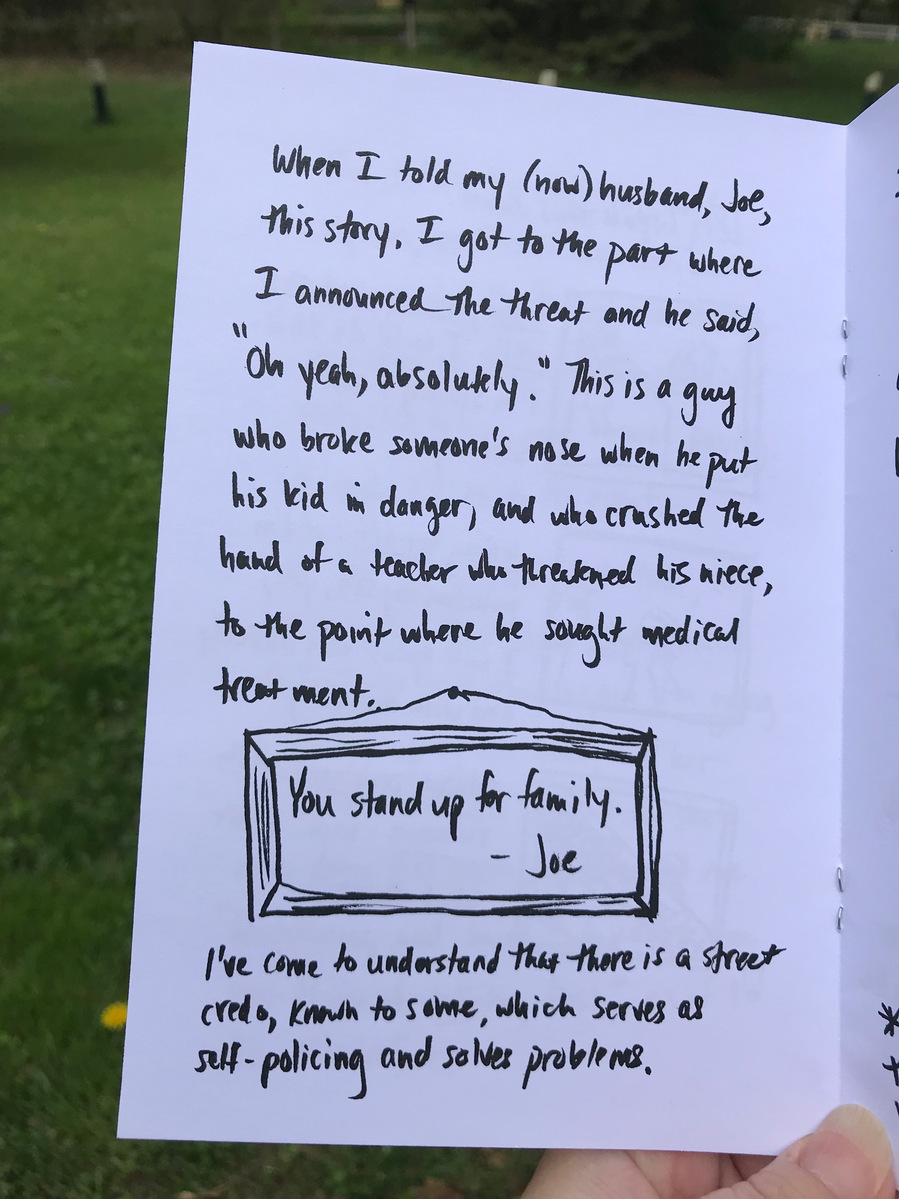 When I told my (now) husband, Joe,
this story, I got to the part where
I announced the threat and he said,
"Oh yeah, absolutely." This is a guy
who broke someone's nose when he put
his kid in danger, and who crushed the
hand of a teacher who threatened his niece,
to the point where he sought medical
treatment.
You stand up for family.
- Joe
I've come to understand that there is a street
credo, known to some, which serves as
self-policing and solves problems.